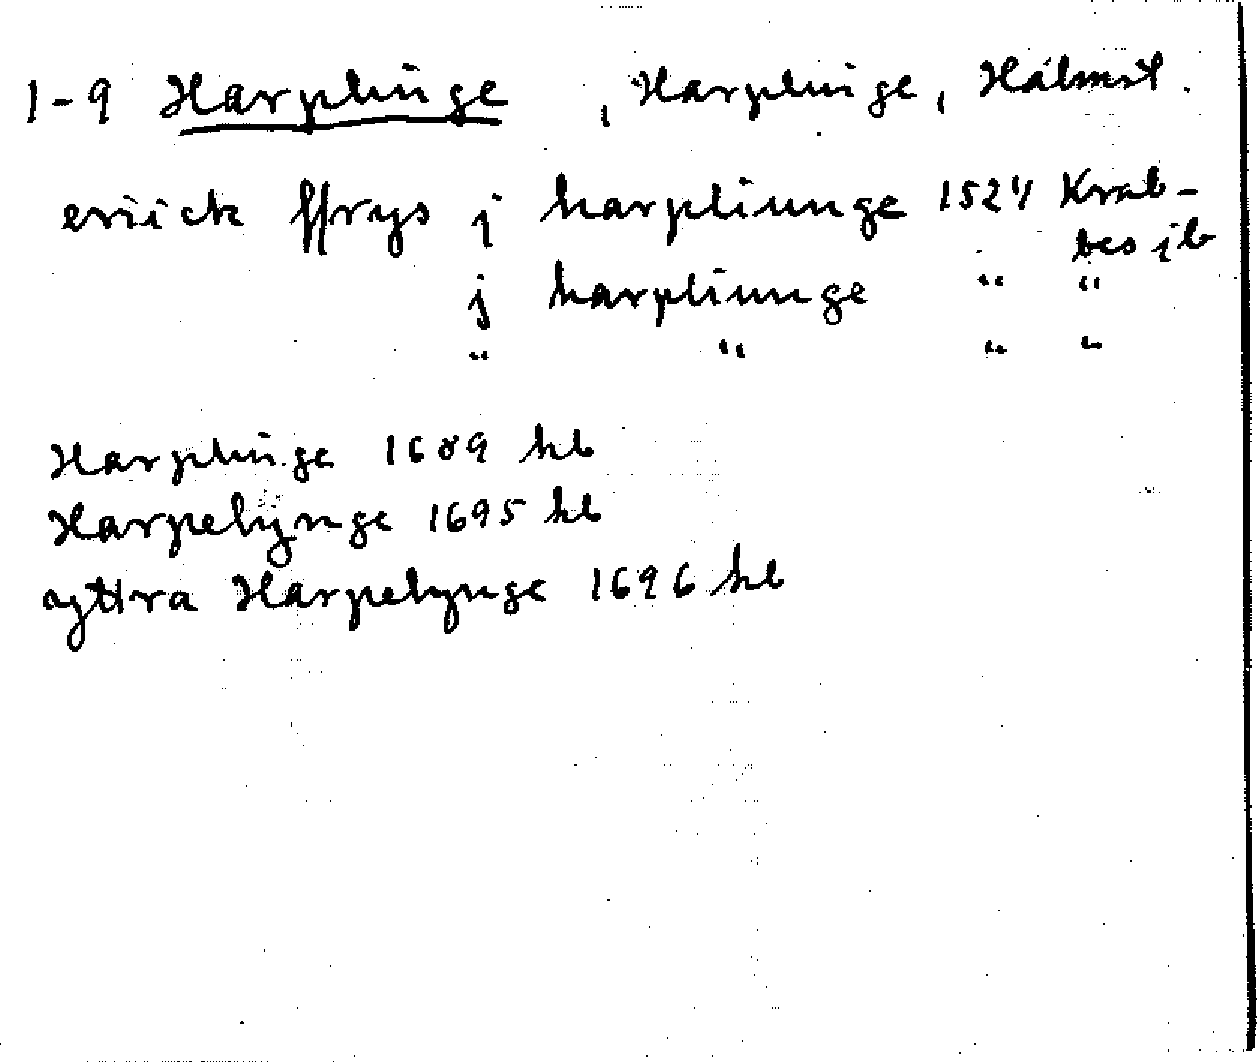 1-9 Harplinge , Harplinge, Halmst.
eriick ffrys j harpliunge 1524 Krab-
bes jb
j harpliunge " "
" " " "
Harplinge 1689 hb
Harpelynge 1695 hb
yttra Harpelynge 1696 hb